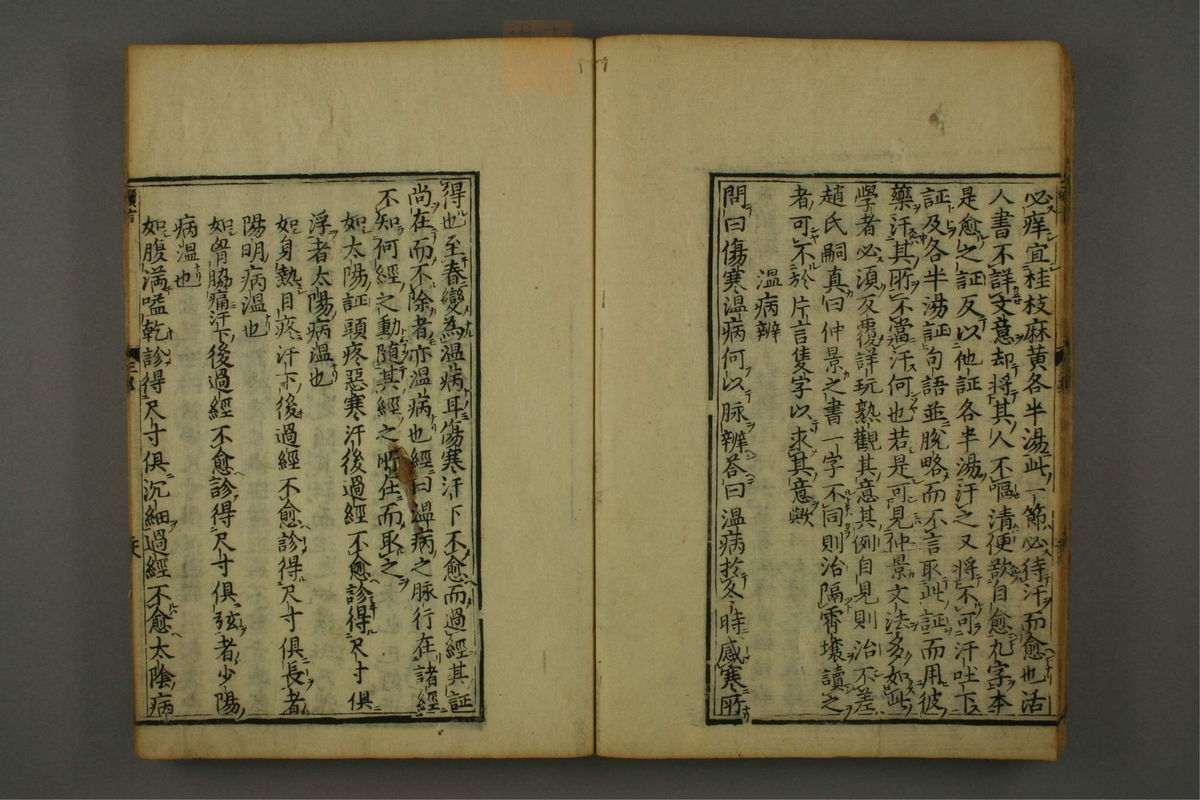 必痒宜桂枝麻黄各半湯此一節必待汗而愈也活
人書不詳文意却将其人不嘔清便欲自愈九字本
是愈之証反以他証各半湯汗之又将不可汗吐下
証及各半湯証句語並脱略而不言取此証而用彼
藥汗其所不當汗何也若是可見仲景文法多如此
學者必須反覆詳玩熟觀其意其例自見則治不差
趙氏嗣真曰仲景之書一字不同則治隔霄壤讀之
者可不於片言隻字以求其意歟
温病辨
問曰傷寒温病何以脉辨荅曰温病於冬時感寒所
得也至春變為温病耳傷寒汗下不愈而過經其証
尚在而不除者亦温病也經曰温病之脉行在諸經
不知何經之動隨其經之所在而取之
如太陽証頭疼惡寒汗後過經不愈診得尺寸俱
浮者太陽病温也
如身熱目疼汗下後過經不愈診得尺寸俱長者
陽明病温也
如胷脇痛汗下後過經不愈診得尺寸俱弦者少陽
病温也
如腹滿嗌乾診得尺寸俱沉細過經不愈太陰病